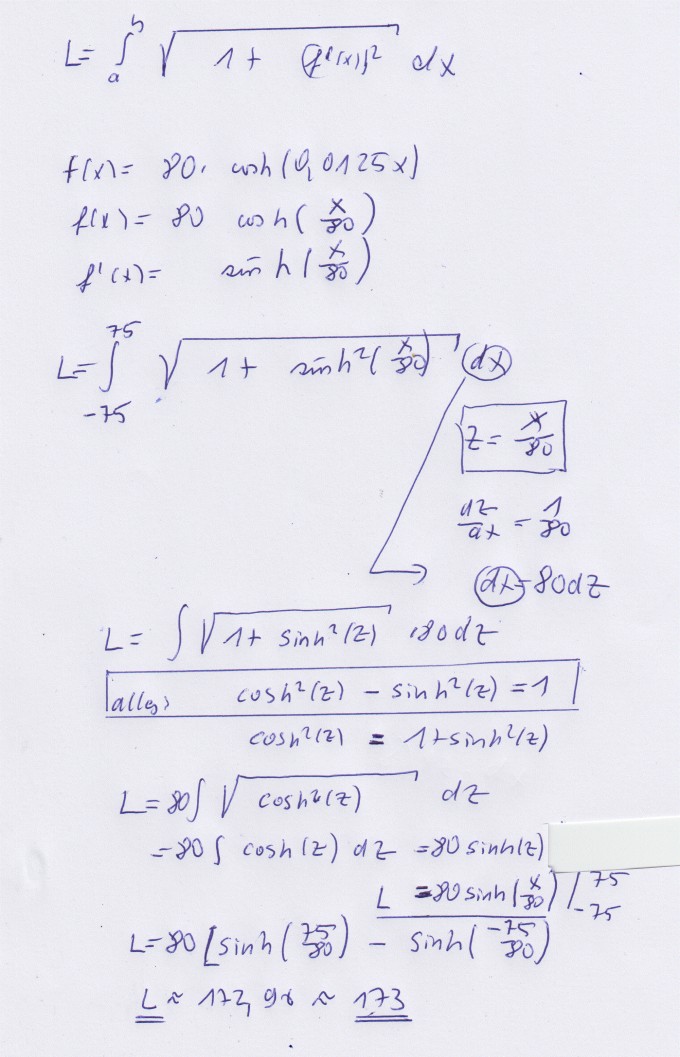 L = ∫_a^b √(1 + (f'(x))²) dx
f(x) = 80 · cosh(0,0125x)
f(x) = 80 cosh(x/80)
f'(x) = sinh(x/80)
L = ∫_-75^75 √(1 + sinh²(x/80)) dx
z = x/80
dz/dx = 1/80
dx = 80dz
L = ∫ √(1 + sinh²(z)) · 80dz
cosh²(z) - sinh²(z) = 1
cosh²(z) = 1 + sinh²(z)
L = 80 ∫ √(cosh²(z)) dz
= 80 ∫ cosh(z) dz = 80 sinh(z)
L = 80 sinh(x/80) |_-75^75
L = 80 [sinh(75/80) - sinh(-75/80)
L ≈ 172,98 ≈ 173